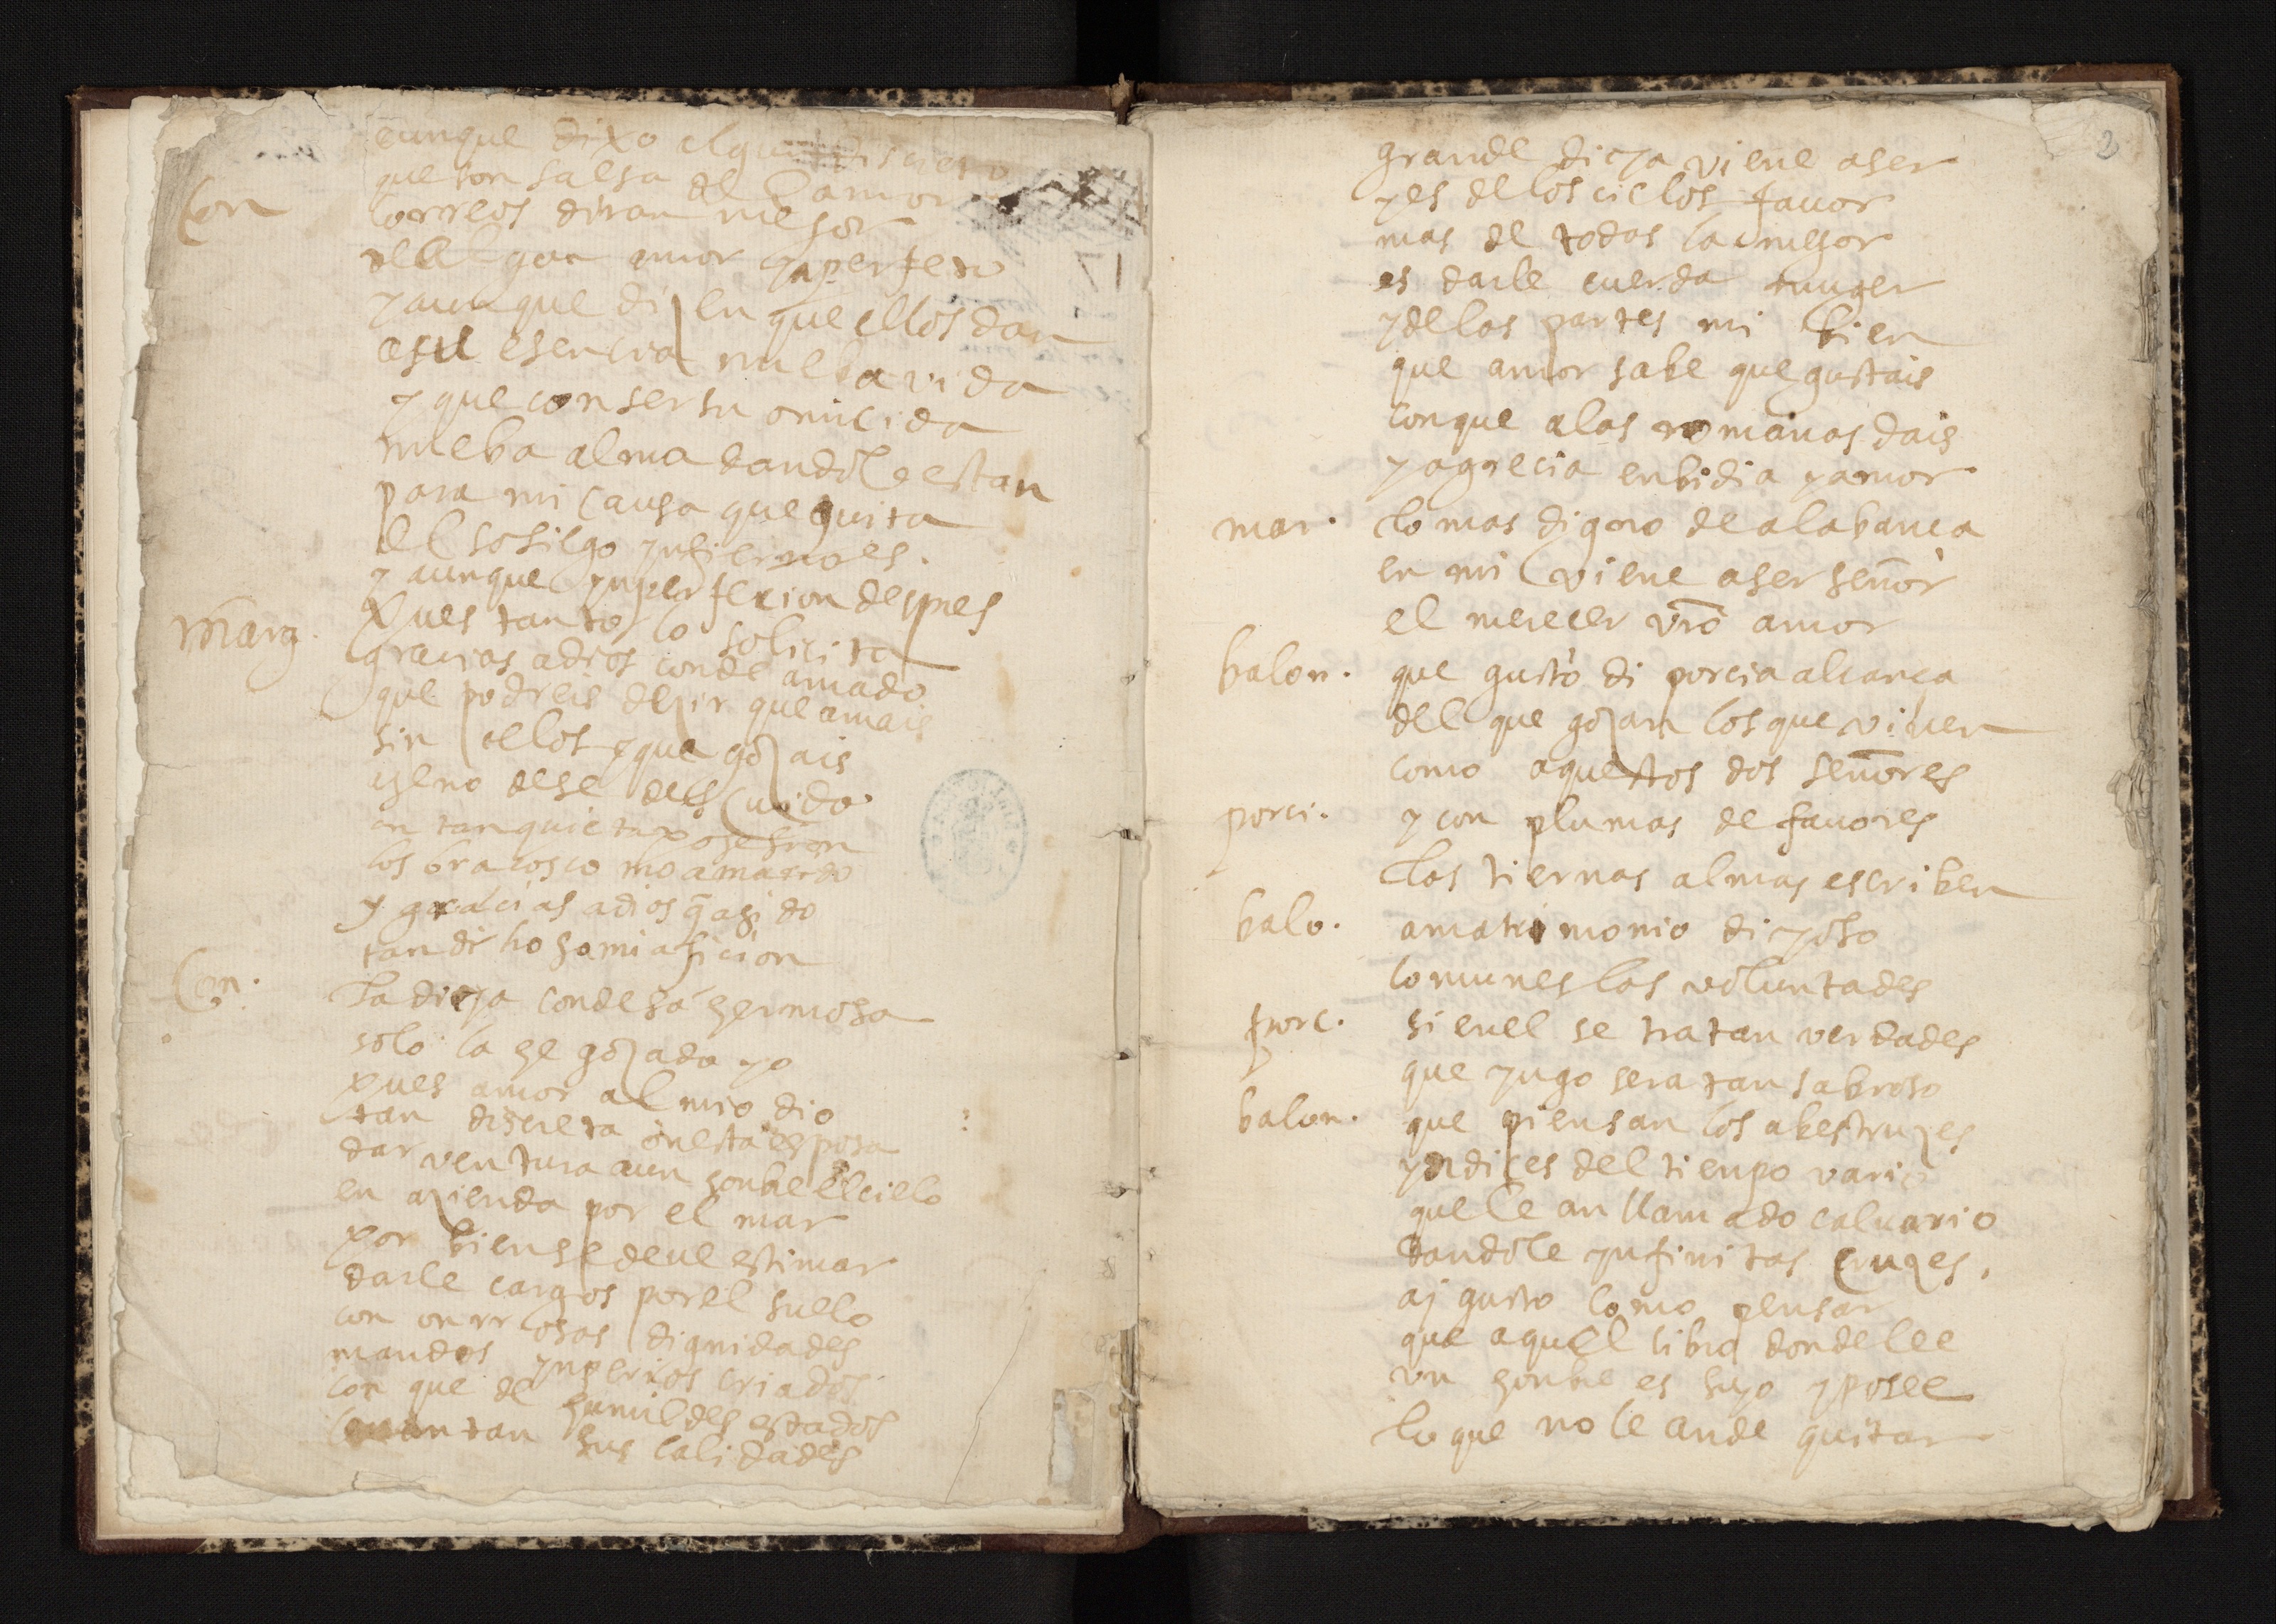 aunque dixo el que discreto
que son salsa del amor
Con correos diran mejor
del que amor ynperfeto
y aunque dizen que ellos dan
a su esencia nueba vida
y que con ser su omicida
nueba alma dandole estan
para mi causa que quita
el sosiego ynfierno es.
y aunque ynperfecion despues
pues tanto lo solicita
Marq. gracias a dios conde amado
que podreis dezir que amais
sin celos y que gozais
ageno dese descuido
en tan quieta posesion
los bracos como amado
y gracias a dios q̃ a sido
tan dichosa mi aficion
Con. la dicya condesa hermosa
solo la he gozado yo
pues amor al mio dio
tan discreta onesta esposa
dar ventura a un honbre el cielo
en azienda por el mar
por bien se deue estimar
darle cargos por el suelo
con onrrosas dignidades
mandos ynperios criados
con que de humildes estados
leuantan sus calidades
2
grande dicya viene a ser
y es de los cielos fauor
mas de todas la mejor
es darle cuerda muger
y de las partes mi bien
que amor sabe que gustais
con que a las romanas dais
y a grecia enbidia y amor
mar. lo mas digno de alabanca
en mi viene a ser señor
el merecer vr̃o amor
balon. que gusto di porcia alcanca
del que gozan los que viuen
como aquestos dos señores
porci. y con plumas de fauores
las tiernas almas escriben
balo. a matrimonio dicyoso
comunes las voluntades
porc. si en el se tratan verdades
que yugo sera tan sabroso
balon. que piensan los abestruzes
yndices del tienpo vario
que le an llamado caluario
dandole ynfinitas cruzes.
ai gusto como pensar
que aquel libro donde lee
vn honbre es suyo y posee
lo que no le an de quitar